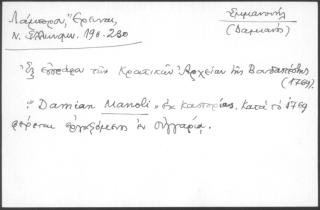 Λάμπρου, "Έρευναι,"
Ν. Ἑλληνομν. 190-230
Ἐμμανουήλ
(Δαμιανός)
Ἐξ ἐγγράφου τῶν Κρατικῶν Ἀρχείων τῆς Βουδαπέστης
(1769).
"Damian Manoli" ἐκ Καστορίας. Κατὰ τὸ 1769
φέρεται ἐργαζόμενος ἐν Οὑγγαρίᾳ.